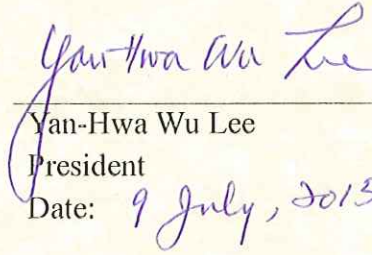 Yan-Hwa Wu Lee
Yan-Hwa Wu Lee
President
Date: 9 July, 2013